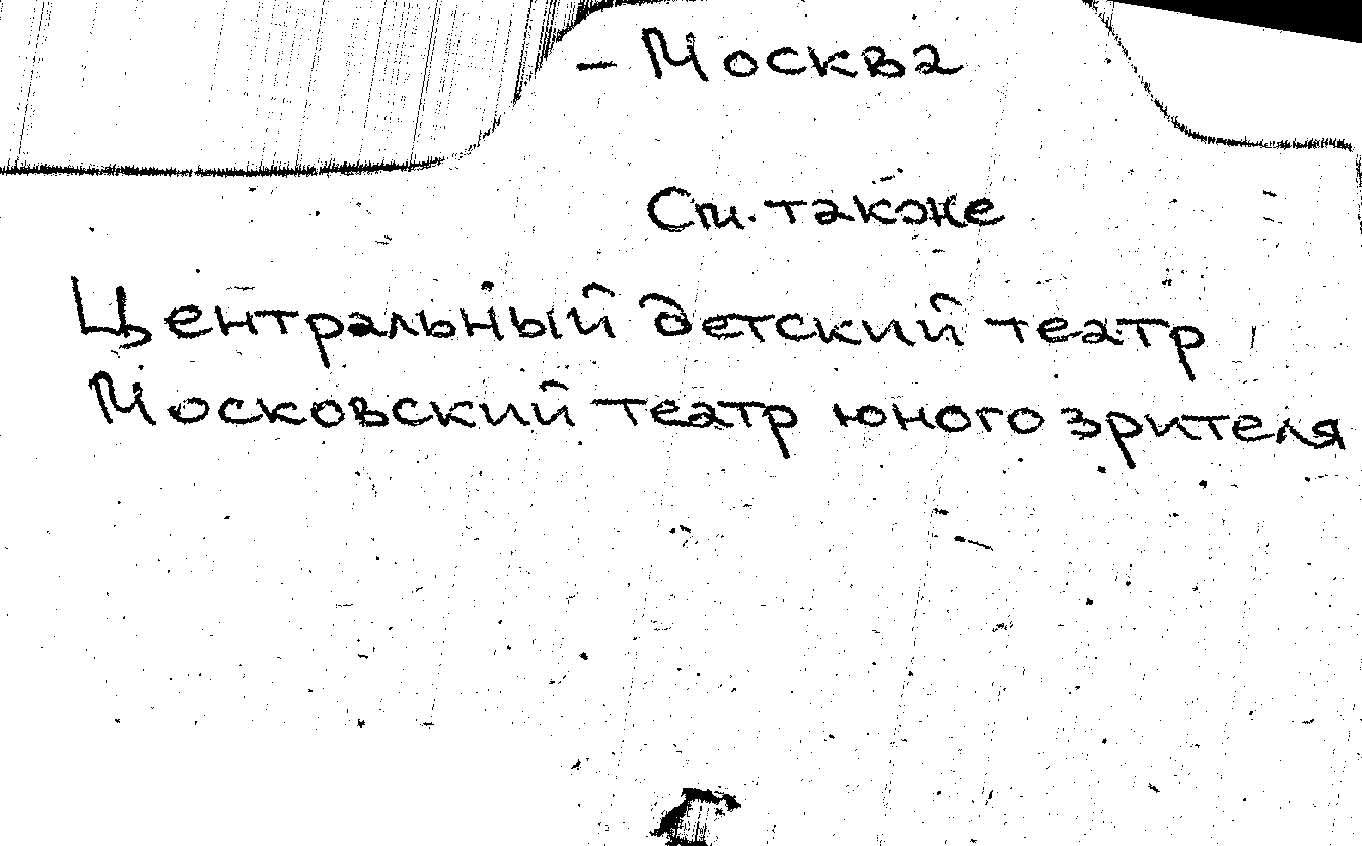 – Москва
См. также
Центральный детский театр
Московский театр юного зрителя